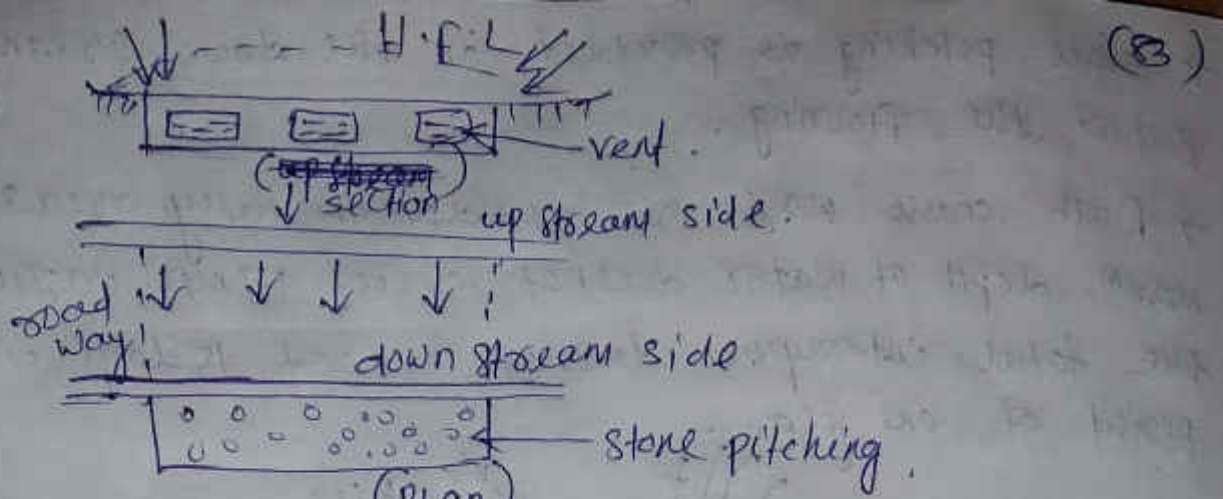 H.F.L
(83)
vent.
section
up stream side.
road
way
down stream side
stone pitching.
(Plan)